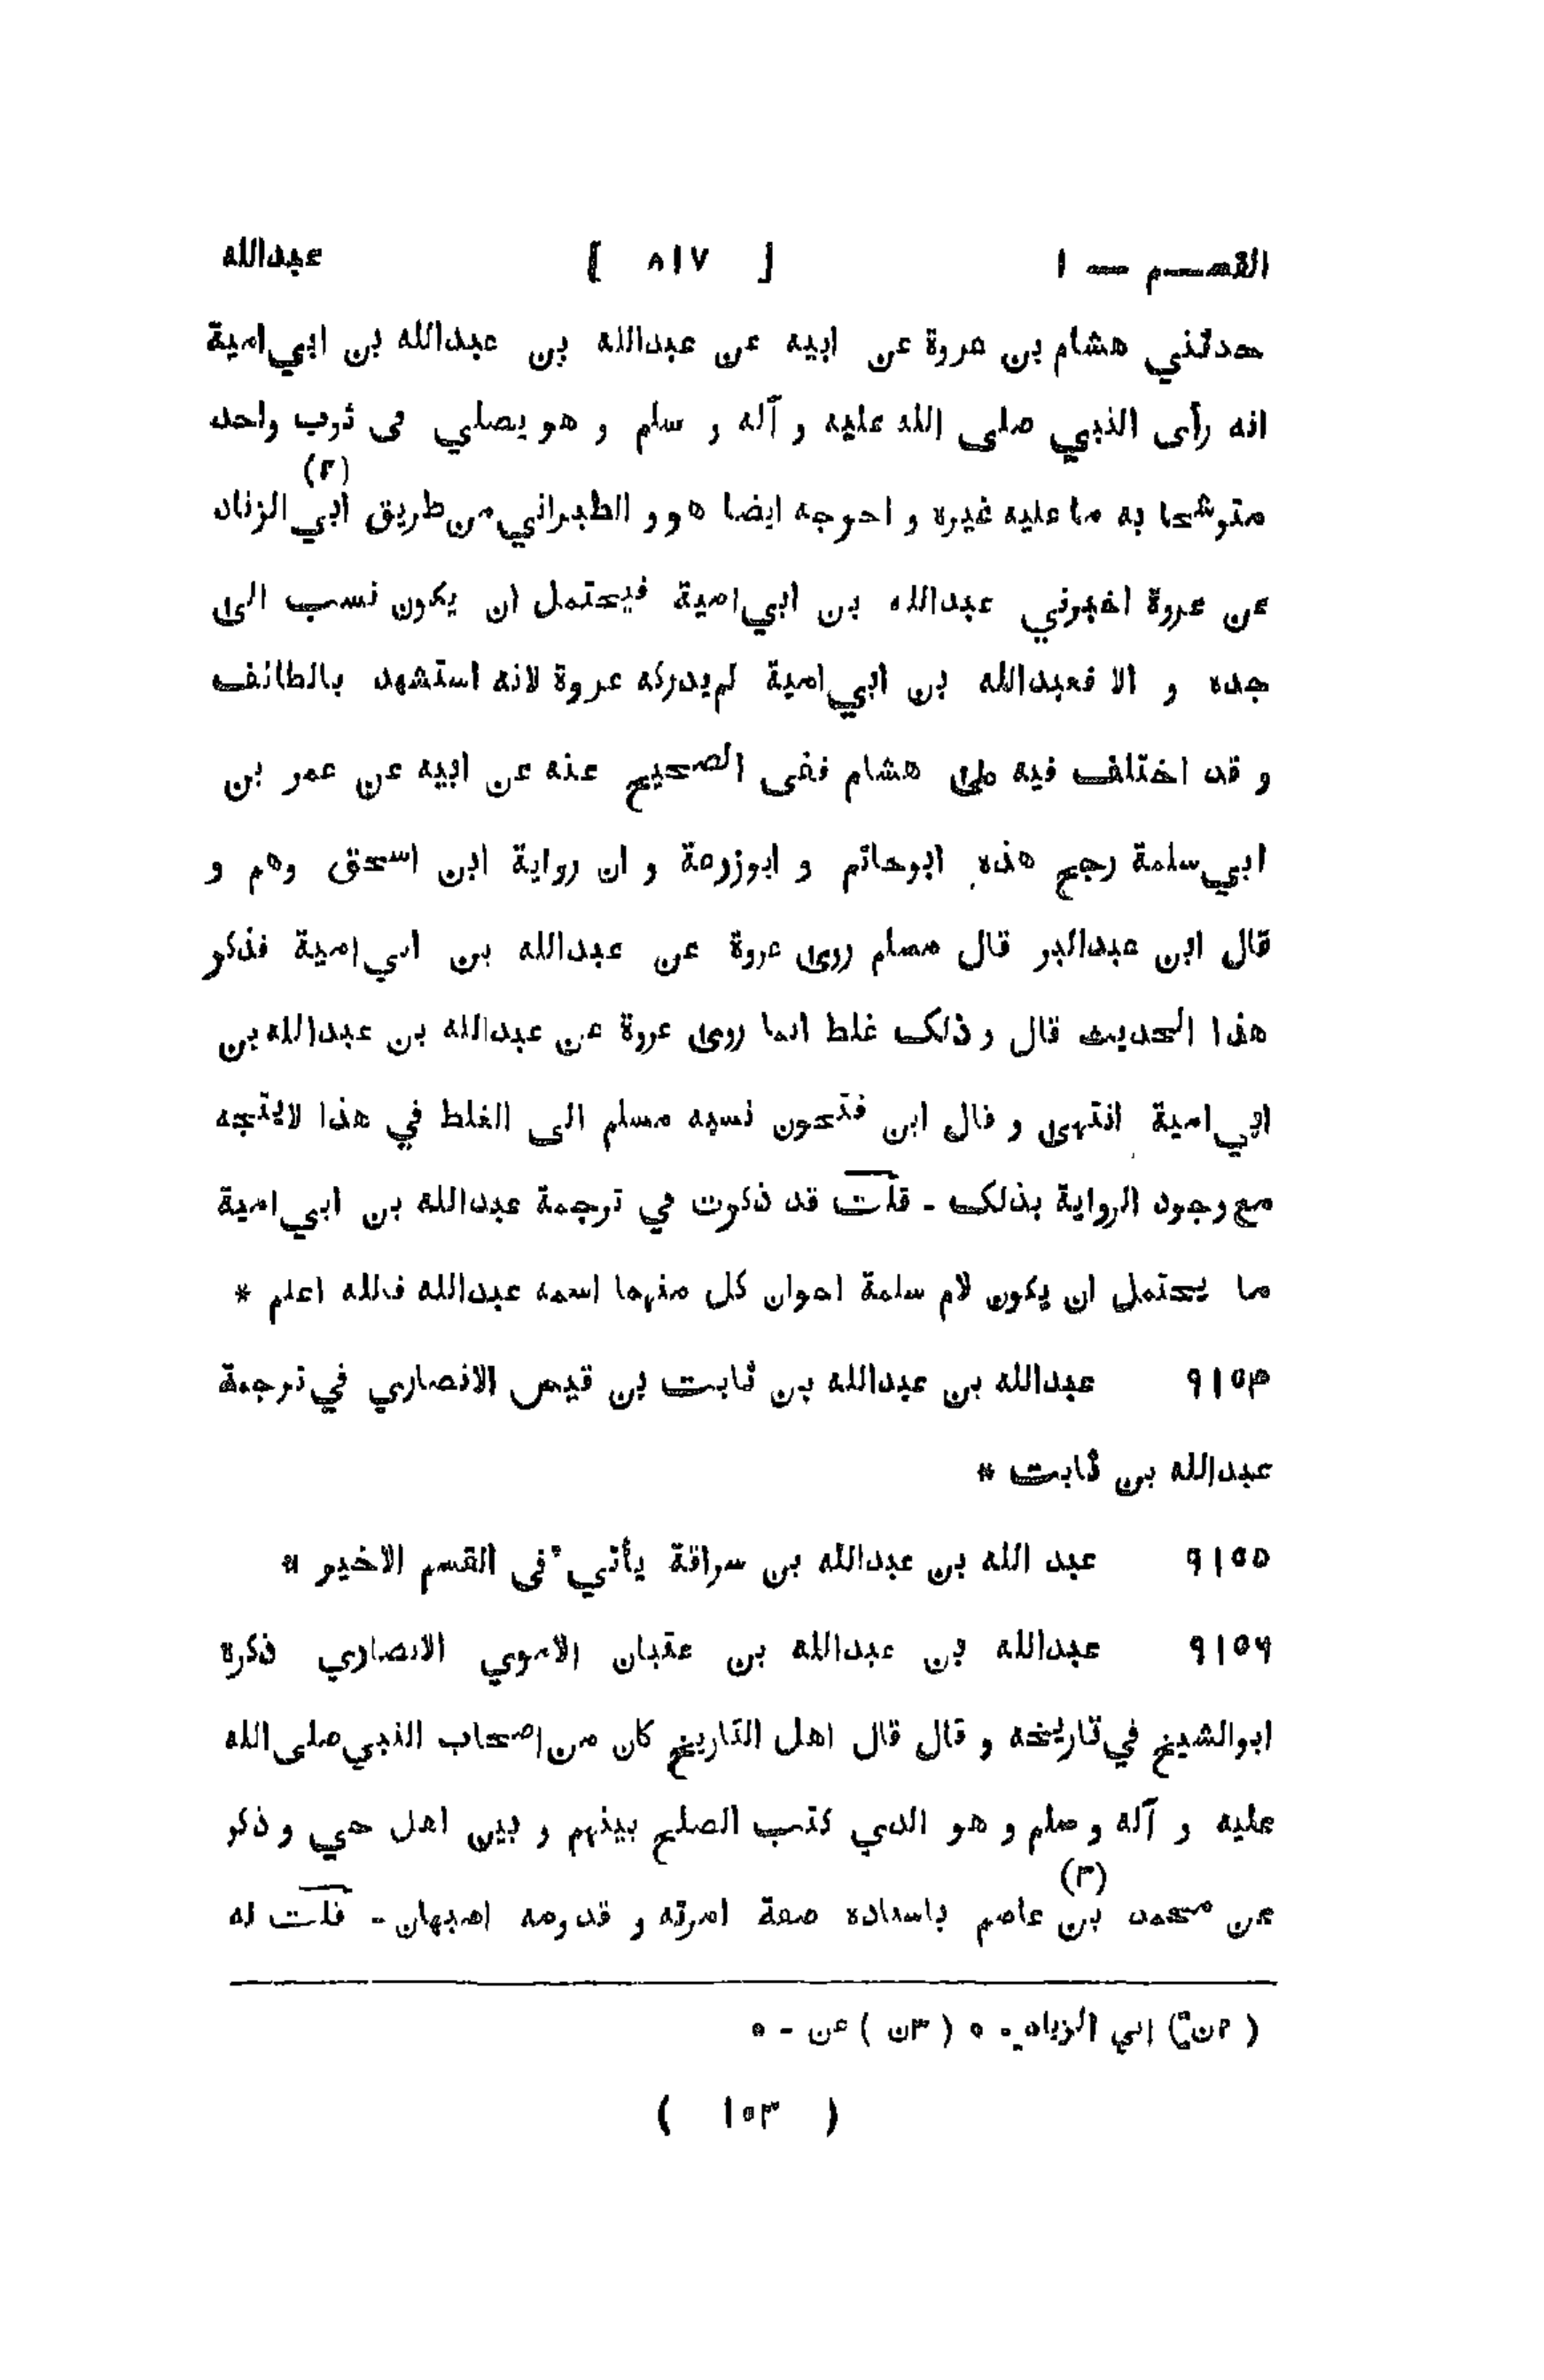 القســم — ١ [ ٨١٧ ] عبدالله
حدثني هشام بن عروة عن ابيه عن عبدالله بن عبدالله بن ابي امية
انه رأى النبي صلى الله عليه و آله و سلم و هو يصلي فى ثوب واحد
(٢)
متوشحا به ما عليه غيره و اخرجه ايضا هو و الطبراني من طريق ابي الزناد
عن عروة اخبرني عبدالله بن ابي امية فيحتمل ان يكون نسب الى
جده و الا فعبدالله بن ابي امية لم يدركه عروة لانه استشهد بالطائف
و قد اختلف فيه على هشام ففى الصحيح عنه عن ابيه عن عمر بن
ابي سلمة رجح هذه ابوحاتم و ابوزرعة و ان رواية ابن اسحق وهم و
قال ابن عبدالبر قال مسلم روى عروة عن عبدالله بن ابي امية فذكر
هذا الحديث قال و ذلك غلط انما روى عروة عن عبدالله بن عبدالله بن
ابي امية انتهى و قال ابن فتحون نسبه مسلم الى الغلط في هذا لا يتجه
مع وجود الرواية بذلك - قلت قد ذكرت في ترجمة عبدالله بن ابي امية
ما يحتمل ان يكون لام سلمة اخوان كل منهما اسمه عبدالله فالله اعلم *
٩١٥٤ عبدالله بن عبدالله بن ثابت بن قيس الانصاري في ترجمة
عبدالله بن ثابت *
٩١٥٥ عبد الله بن عبدالله بن سراقة يأتي فى القسم الاخير *
٩١٥٦ عبدالله بن عبدالله بن عتبان الاموي الانصاري ذكره
ابوالشيخ في تاريخه و قال قال اهل التاريخ كان من اصحاب النبي صلى الله
عليه و آله و سلم و هو الذي كتب الصلح بينهم و بين اهل حي و ذكر
(٣)
عن محمد بن عاصم باسناده صفة امرته و قدومه اصبهان - قلت له
( ٢ن ) ابي الزياد - ٥ ( ٣ن ) عن - ٥
( ١٥٣ )